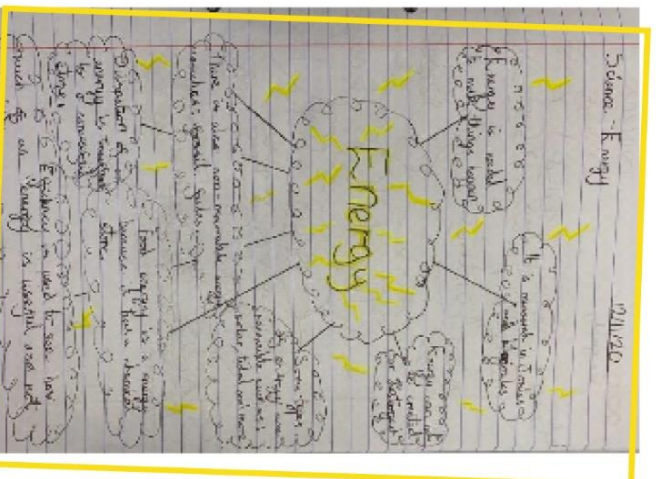 Science - Energy
12/11/20
Energy is needed
to make things happen
It is measured in Joules
and kilojoules
Energy
Energy can not
be created
or destroyed
Some types
of energy are
renewable such as:
solar, tidal and more
There is also non-renewable energy
such as: fossil fuels
Food energy is a energy
because it has a chemical
store
Dissipation of
energy is
Efficiency is used to see how
much of an energy is useful or not